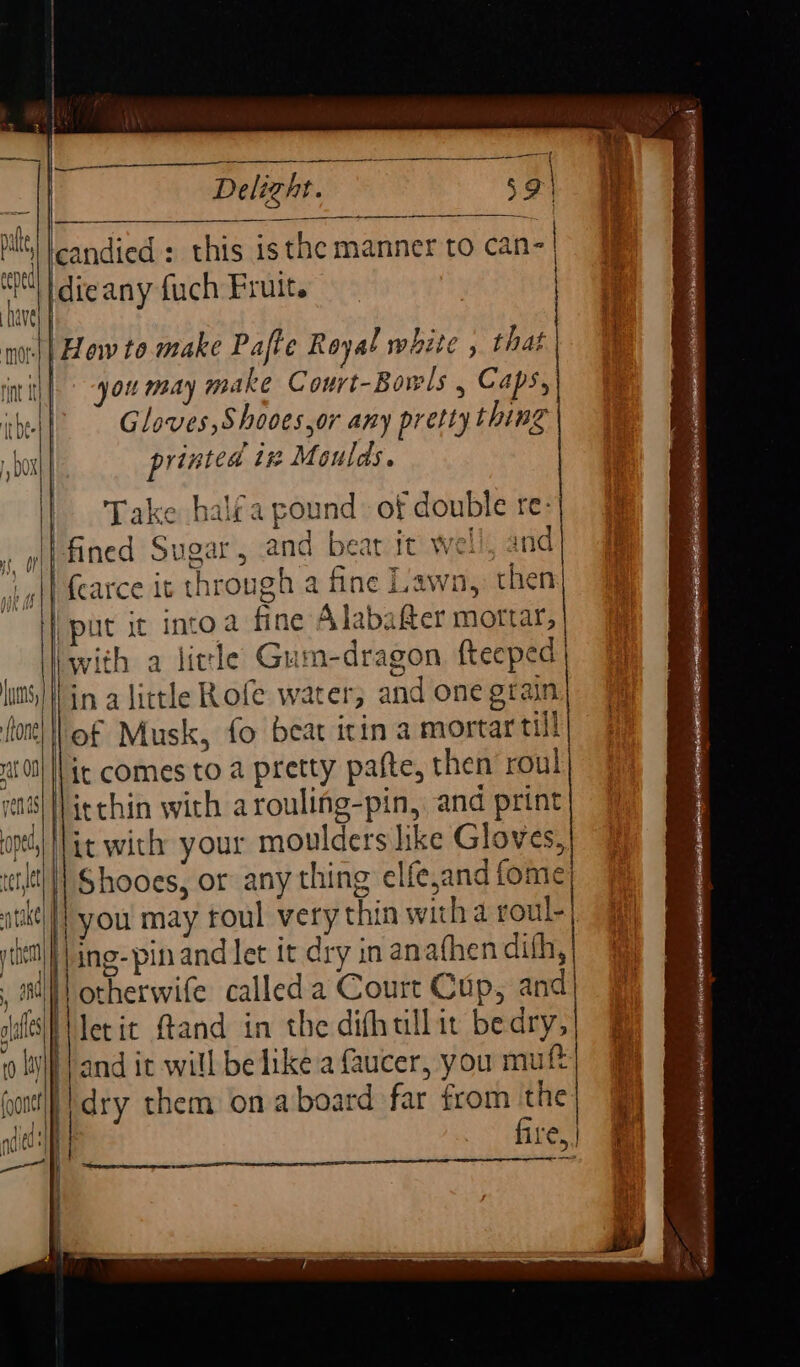 Delight. 59
candied : this is the manner to can-
die any ſuch Fruit.
How to make Paſte Royal white , that
you may make Court-Bowls , Caps,
Gloves, Shooes, or any pretty thing
printed in Moulds.
Take half a pound of double re-
fined Sugar, and beat it well, and
ſearce it through a fine Lawn, then
put it into a fine Alabaſter mortar,
with a little Gum-dragon ſteeped
in a little Roſe water, and one grain
of Musk, ſo beat it in a mortar till
it comes to a pretty paſte, then roul
it thin with a rouling-pin, and print
it with your moulders like Gloves,
Shooes, or any thing elſe, and ſome
you may roul very thin with a roul-
ing-pin and let it dry in an aſhen diſh,
otherwiſe called a Court Cup, and
let it ſtand in the diſh till it be dry,
and it will be like a ſaucer, you muſt
dry them on a board far from the
fire,